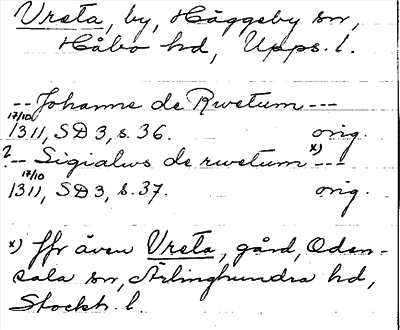 Vreta, by, Häggeby sn,
Håbo hd, Upps. l.
--- Johanne de Rwetum ---
17/10
1311, SD 3, s. 36. orig.
? --- Sigialws de rwetum x) ---
17/10
1311, SD 3, s. 37. orig.
x) Jfr även Vreta, gård, Oden-
sala sn, Ärlinghundra hd,
Stockh. l.